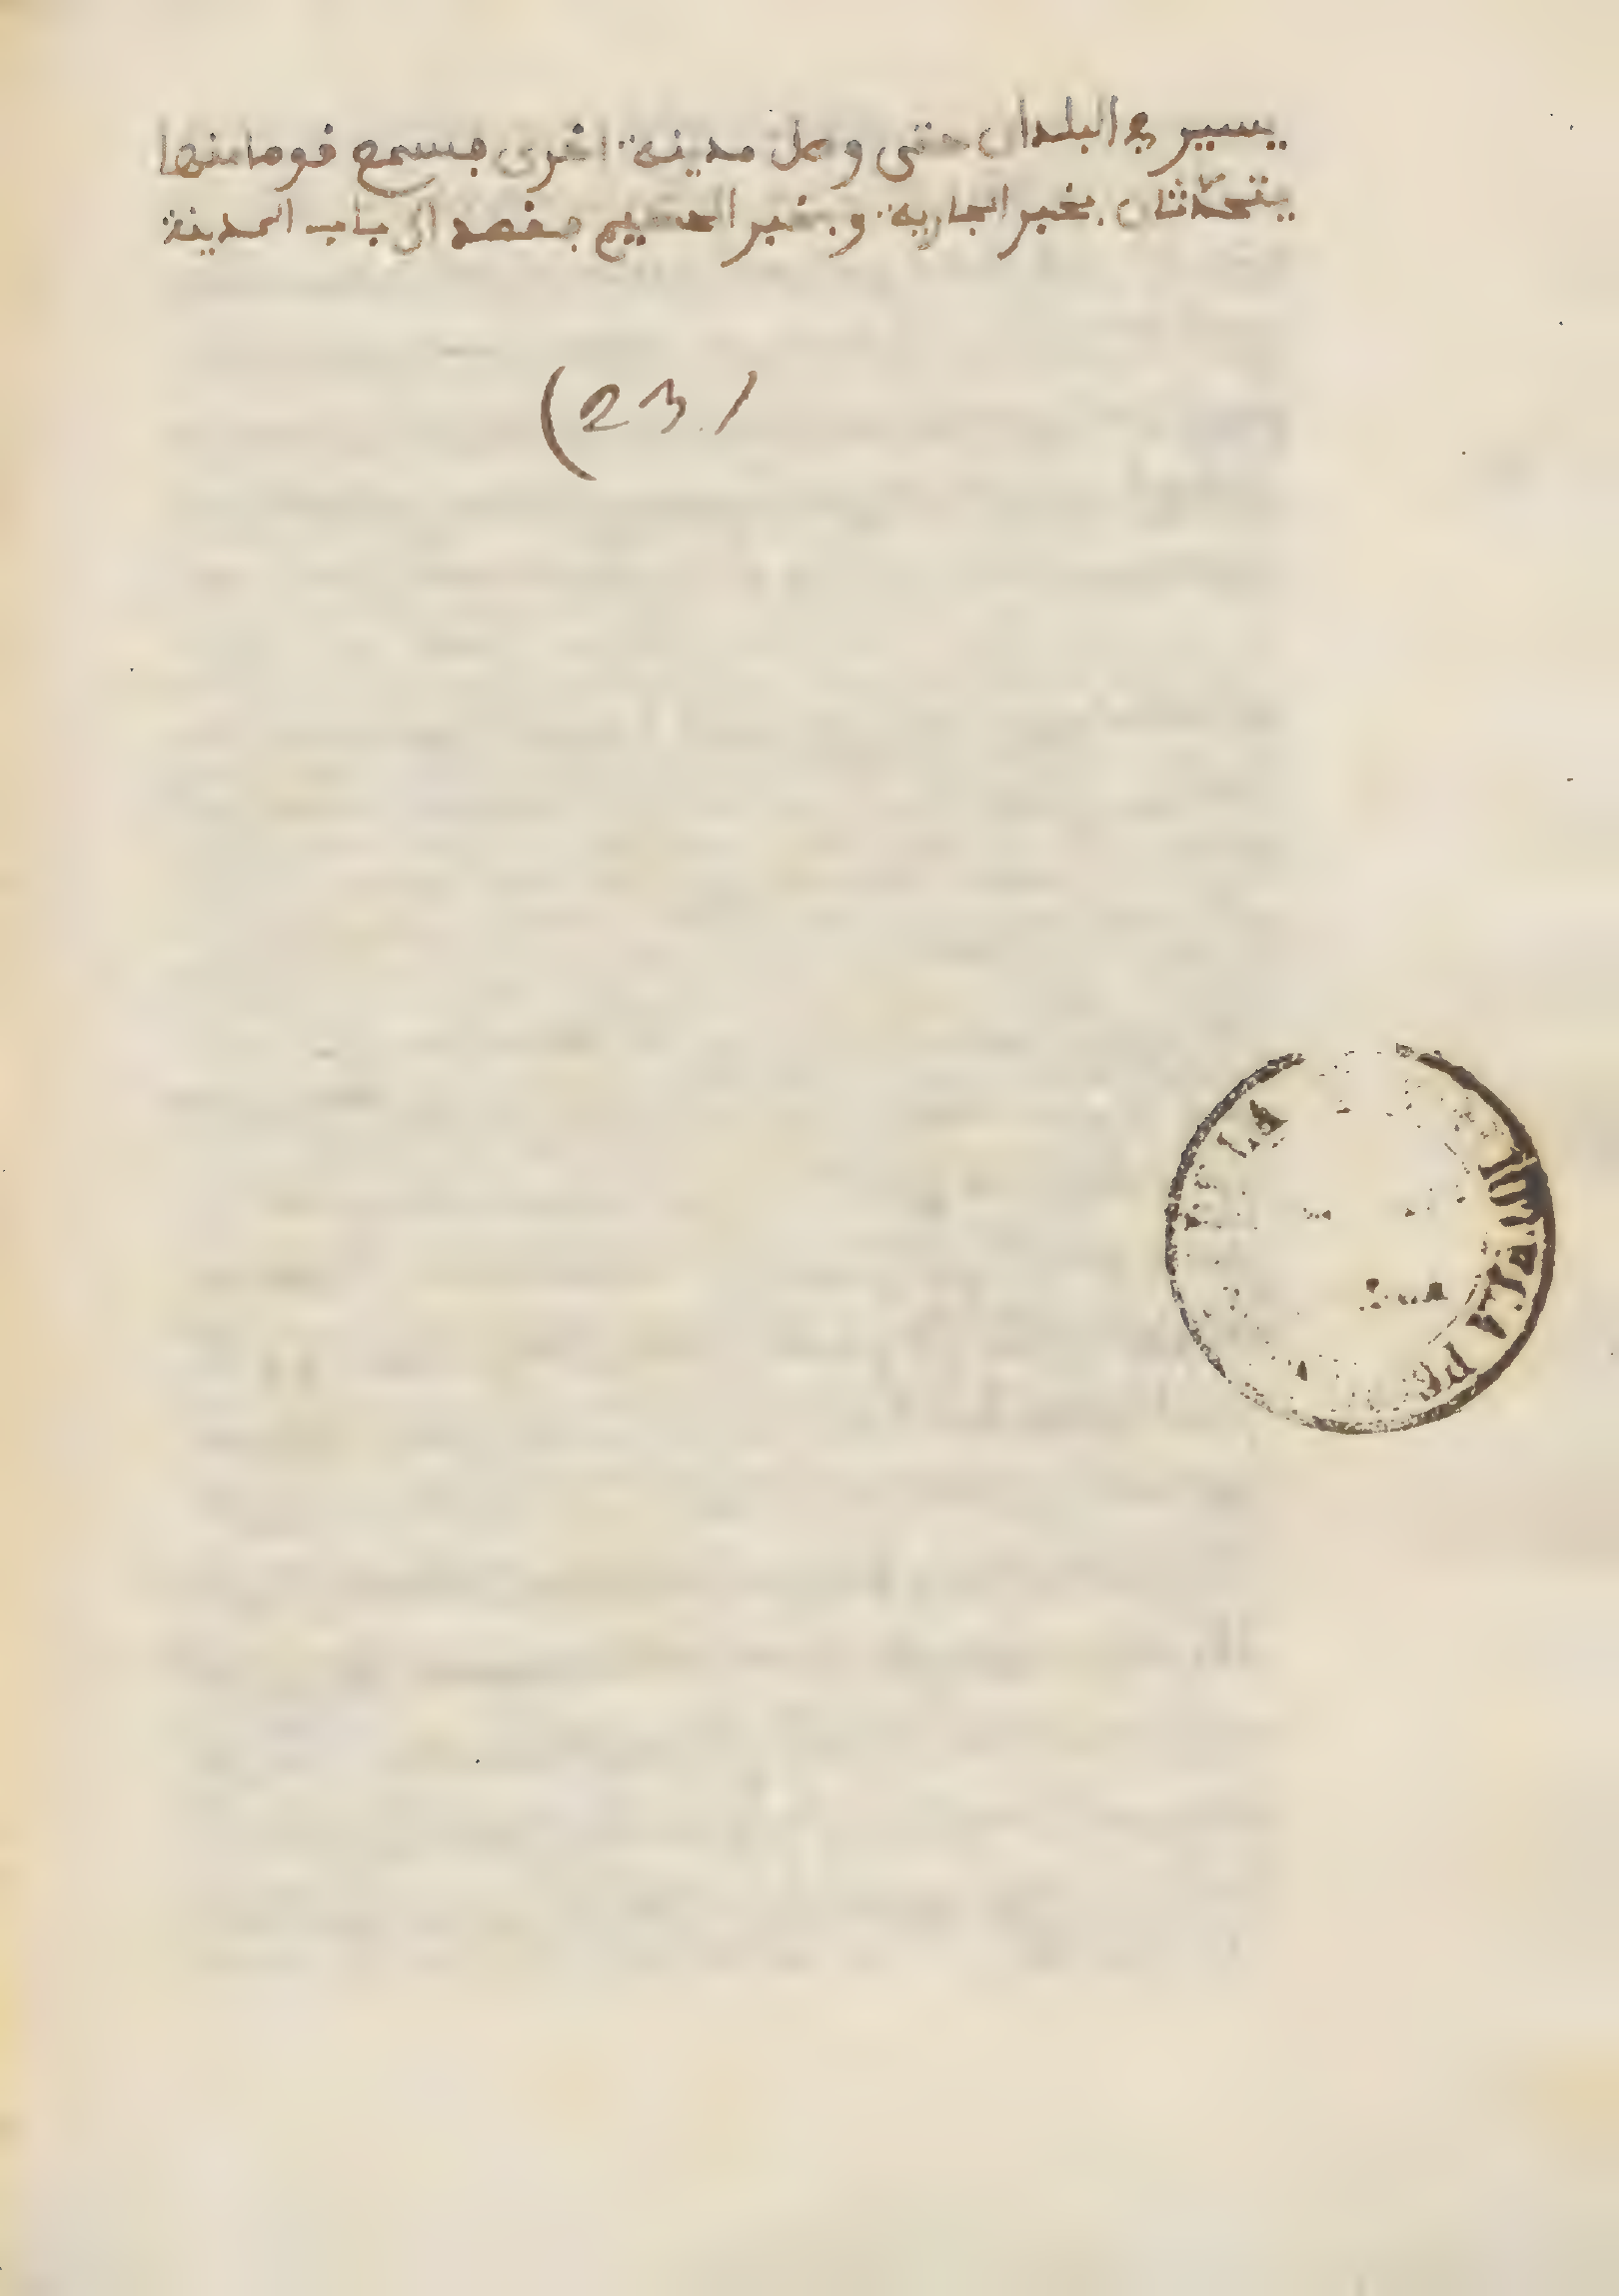 يسير في البلدان حتى وصل مدينة اخرى فسمع قوما منها
يتحدثان بخبر الجارية وبخبر الحكيم فقصد الى باب المدينة
(23/